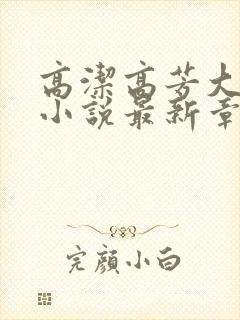 高潔高芳大
小說最新章
完顏小白